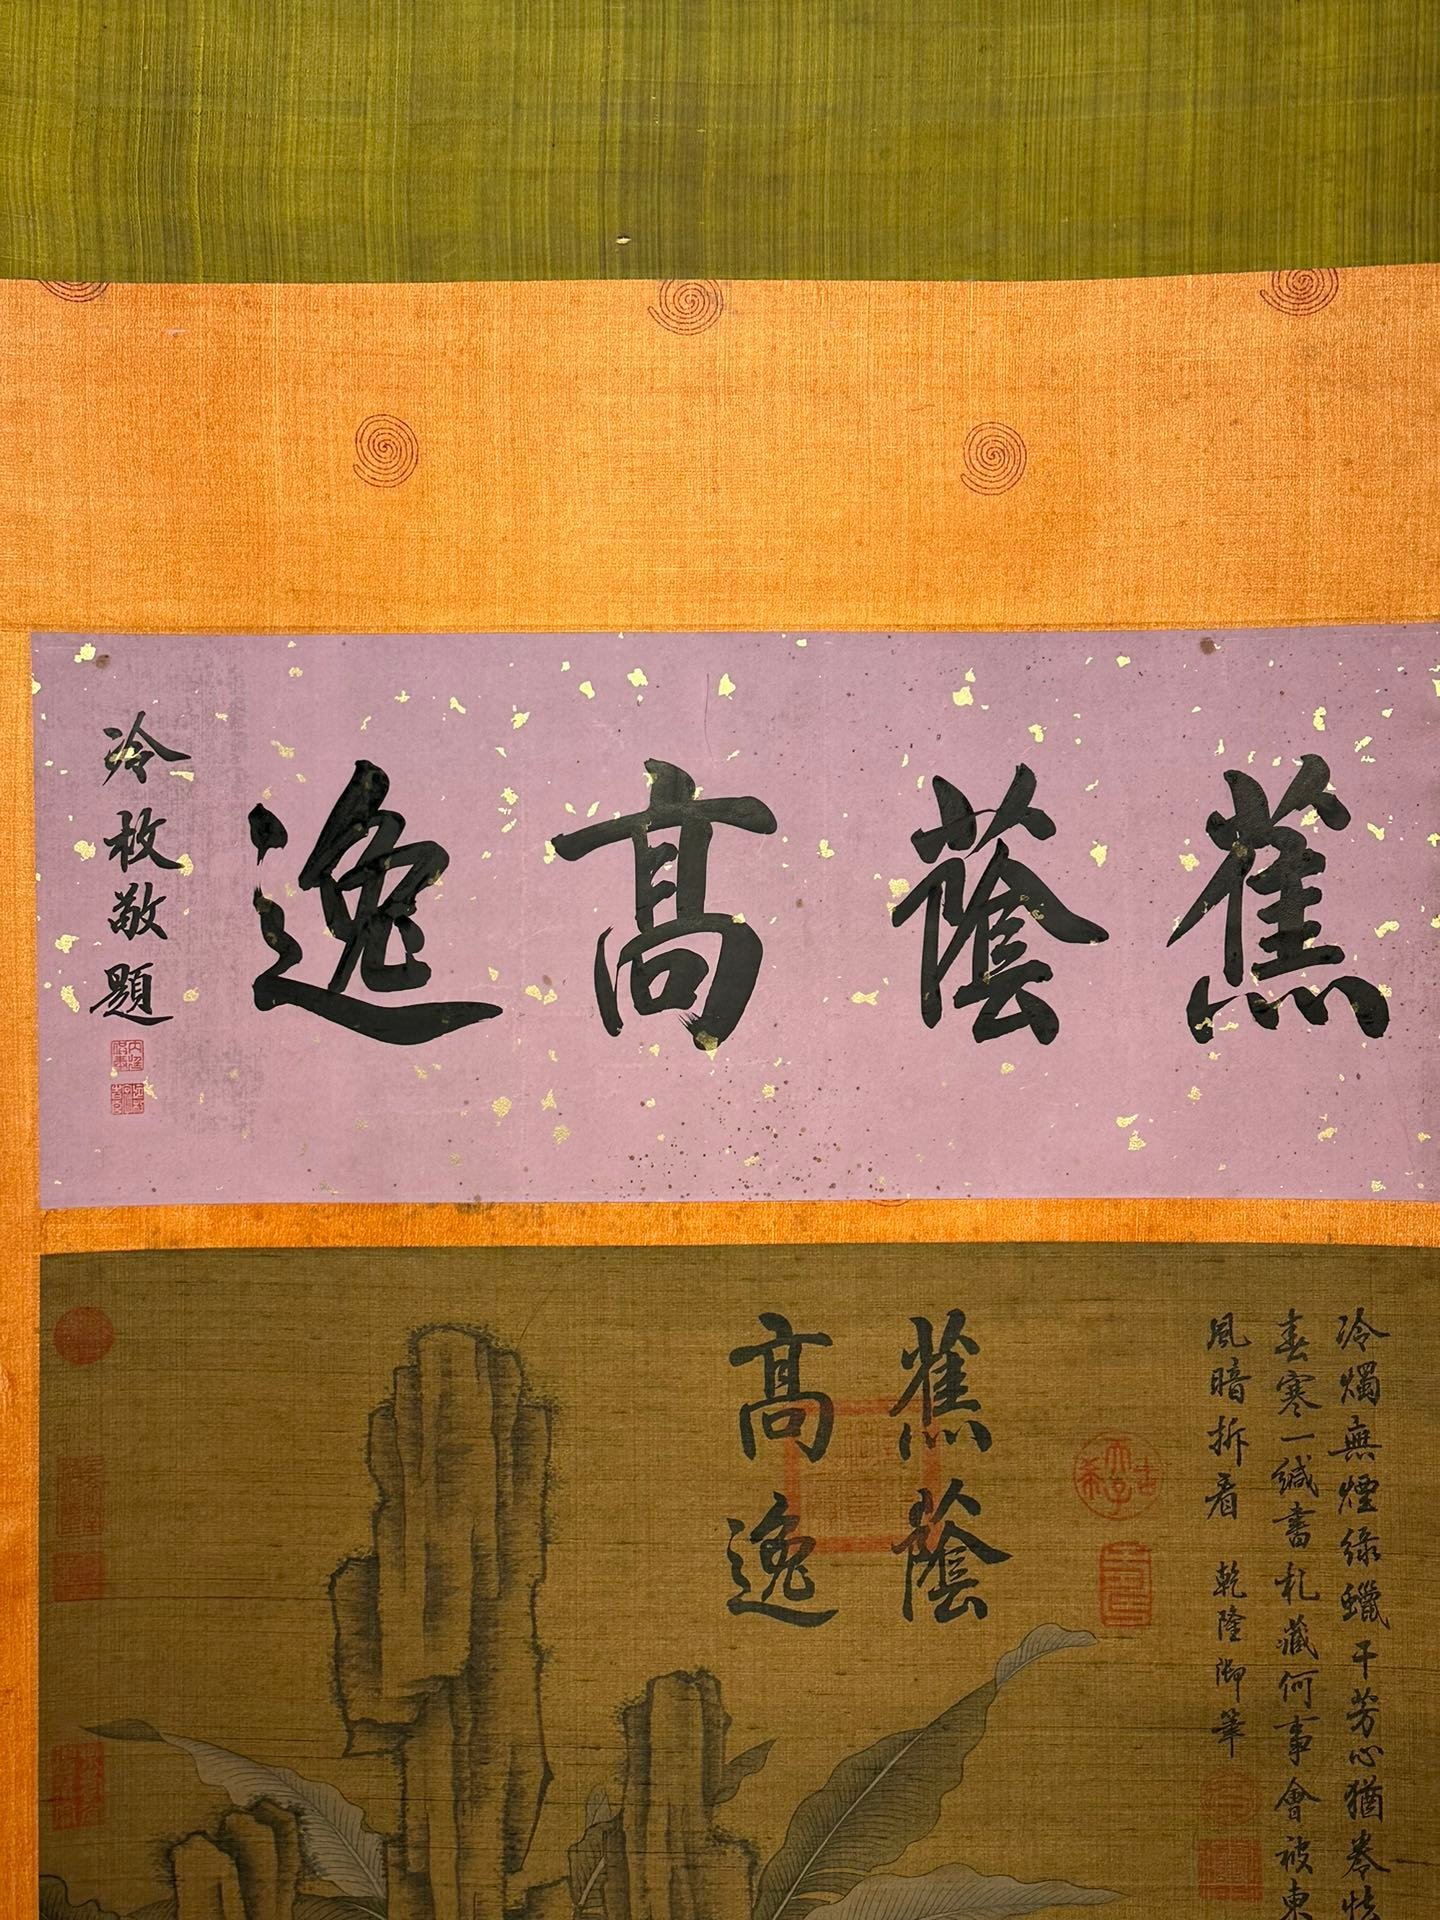 蕉蔭高逸
冷枚敬題
冷燭無煙綠蠟干芳心猶卷怯
春寒一緘書札藏何事會被東
風暗拆看 乾隆御筆
蕉蔭
高逸